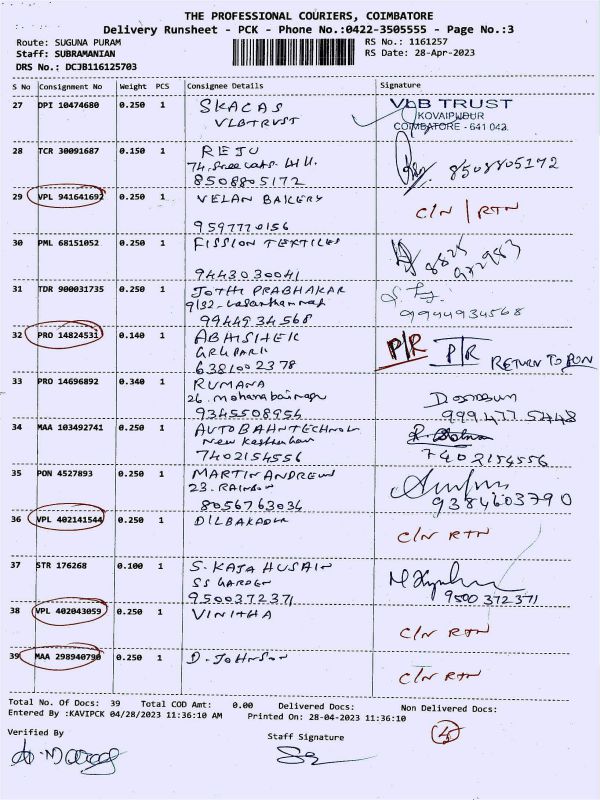 THE PROFESSIONAL COURIERS, COIMBATORE
Delivery Runsheet - PCK - Phone No.:0422-3505555 - Page No.:3
Route: SUGUNA PURAM RS No.: 1161257
Staff: SUBRAMANIAN RS Date: 28-Apr-2023
DRS No.: DCJB116125703
S No Consignment No Weight PCS Consignee Details Signature
27 DPI 10474680 0.250 1 SKACAS VLB TRUST
VLBTRUST KOVAIPUDUR
COIMBATORE - 641 042
28 TCR 30091687 0.150 1 REJU
8508805172 8508805172
29 VPL 941641692 0.250 1 VELAN BAKERY C/N | RTN
9597770156
30 PML 68151052 0.250 1 FISSION TEXTILES 8825
9443030041 972983
31 TDR 900031735 0.250 1 JOTHI PRABHAKAR
9/32-
9944934568 9944934568
32 PRO 14824531 0.140 1 ABHISHEK P/R P/R RETURN TO
6381002378
33 PRO 14696892 0.340 1 RUMANA
26.
9345508956 999477 5448
34 MAA 103492741 0.250 1 AUTOBAHNTECHNOL
New
7402154556 7402154556
35 PON 4527893 0.250 1 MARTIN ANDREW
23. RAINBOW
8056763036 9384603790
36 VPL 402141544 0.250 1 C/N RTN
37 STR 176268 0.100 1 S. KAJA HUSAIN
SS GARDEN
9500372371 9500372371
38 VPL 402043059 0.250 1 VINITHA C/N RTN
39 MAA 298940790 0.250 1 D. JOHNSON C/N RTN
Total No. Of Docs: 39 Total COD Amt: 0.00 Delivered Docs: Non Delivered Docs:
Entered By :KAVIPCK 04/28/2023 11:36:10 AM Printed On: 28-04-2023 11:36:10
Verified By Staff Signature